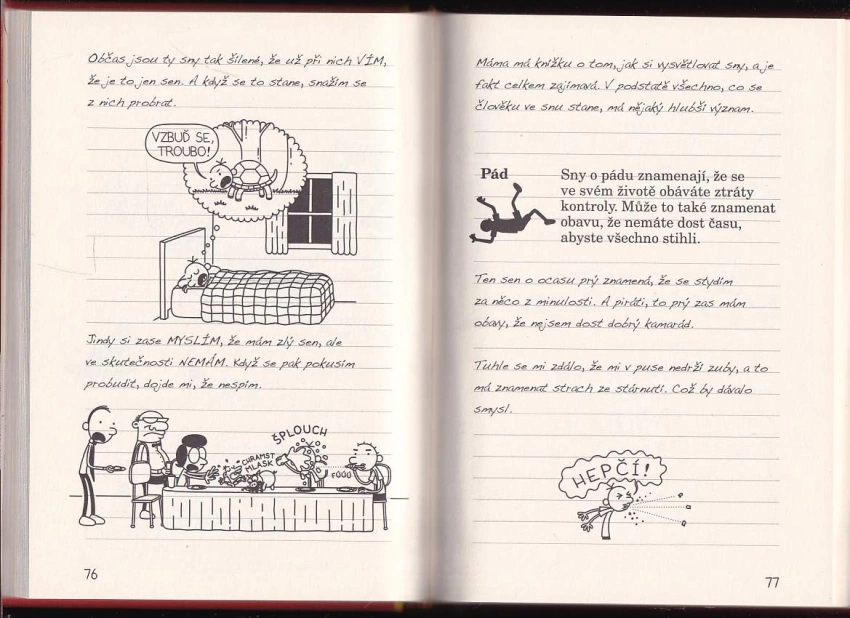 Občas jsou ty sny tak šílené, že už při nich VÍM,
že je to jen sen. A když se to stane, snažím se
z nich probrat.
VZBUĎ SE,
TROUBO!
Jindy si zase MYSLÍM, že mám zlý sen, ale
ve skutečnosti NEMÁM. Když se pak pokusím
probudit, dojde mi, že nespím.
ŠPLOUCH
CHRAMST
MLASK
FŮŮŮ
76
Máma má knížku o tom, jak si vysvětlovat sny, a je
fakt celkem zajímavá. V podstatě všechno, co se
člověku ve snu stane, má nějaký hlubší význam.
Pád
Sny o pádu znamenají, že se
ve svém životě obáváte ztráty
kontroly. Může to také znamenat
obavu, že nemáte dost času,
abyste všechno stihli.
Ten sen o ocasu prý znamená, že se stydím
za něco z minulosti. A piráti, to prý zas mám
obavy, že nejsem dost dobrý kamarád.
Tuhle se mi zdálo, že mi v puse nedrží zuby, a to
má znamenat strach ze stárnutí. Což by dávalo
smysl.
HEPČÍ!
77